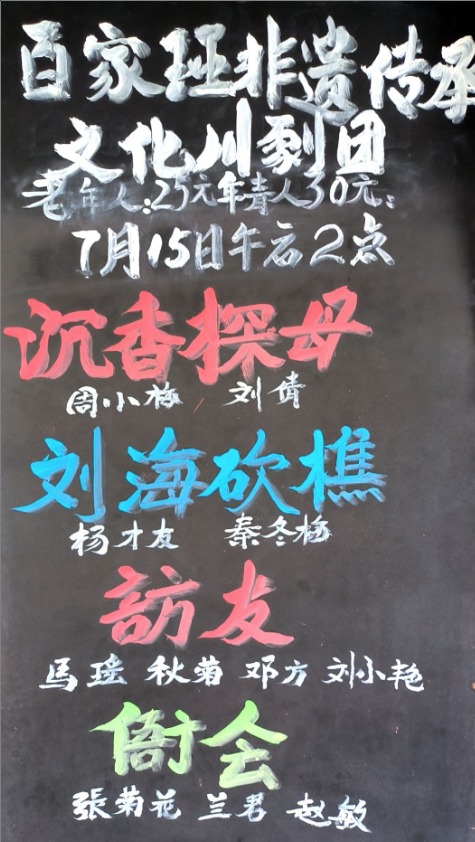 百家班非遗传承
文化川劇团
老年人:25元年青人30元:
7月15日午后2点
沉香探母
周小梅 刘倩
刘海砍樵
杨才友 秦冬梅
訪友
馬瑶 秋菊 邓方 刘小艳
会
張菊花 兰君 赵敏